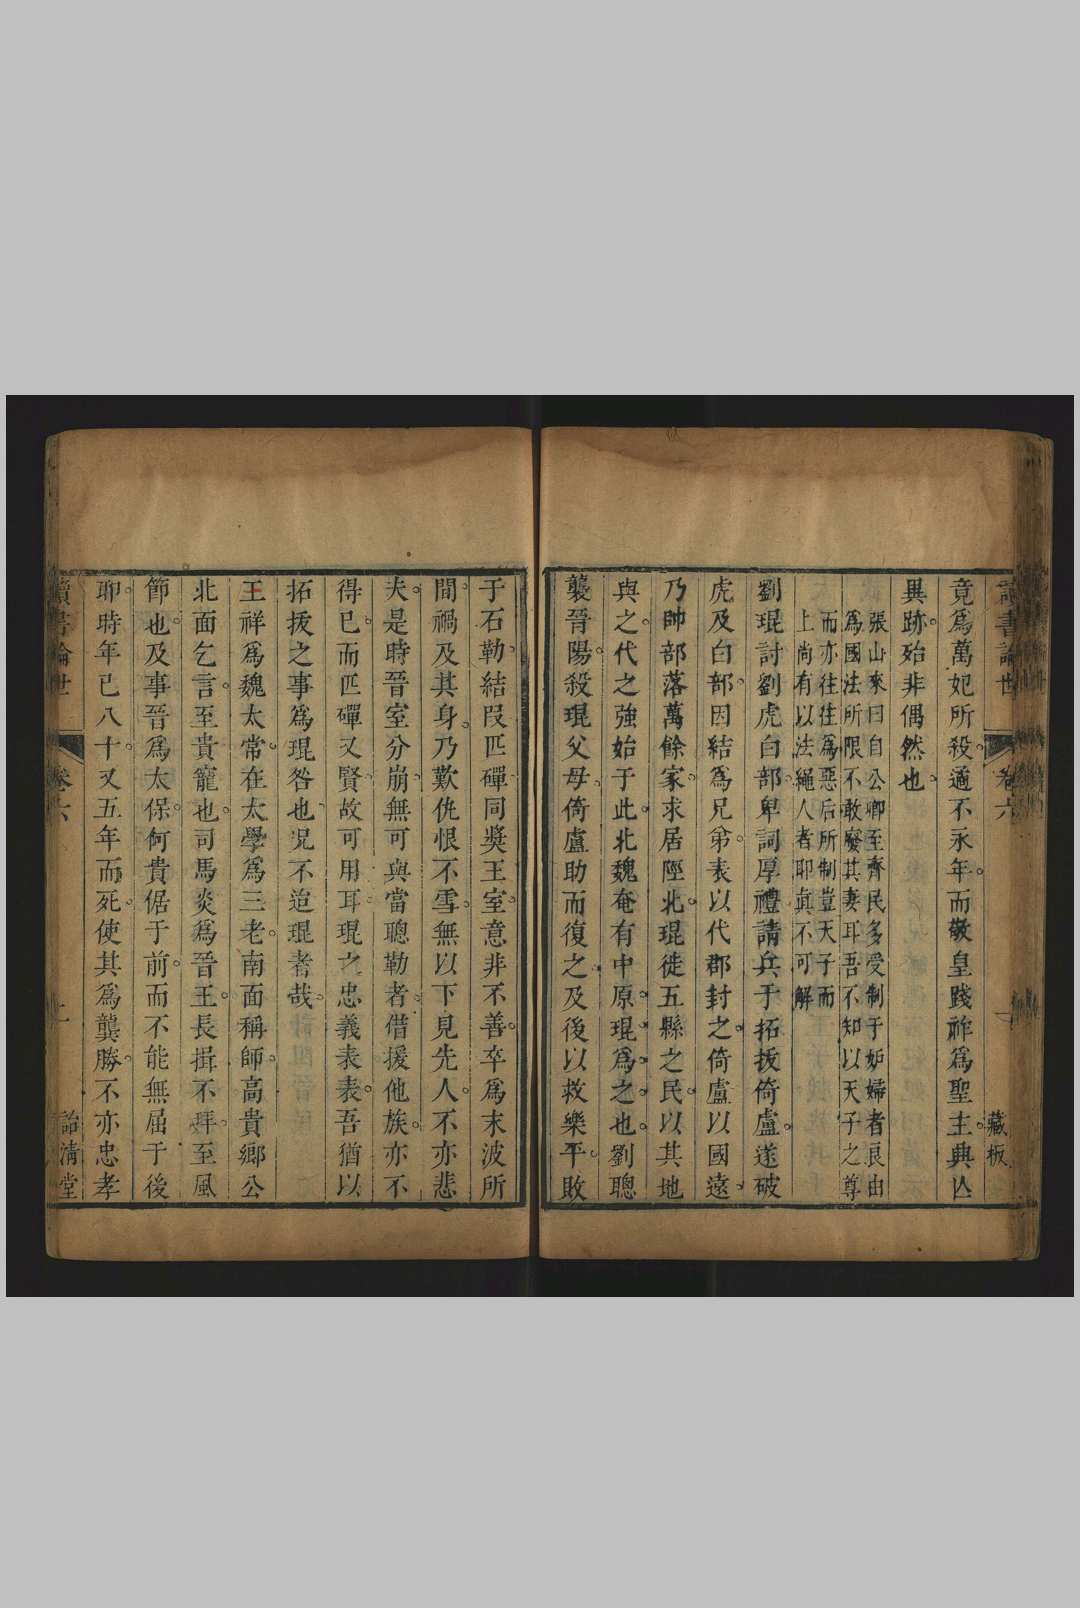 讀書論世
卷六
藏板
竟爲萬妃所殺適不永年而敬皇踐祚爲聖主典亾
異跡殆非偶然也
張山來曰自公卿至齊民多受制于妬婦者良由
爲國法所限不敢廢其妻耳吾不知以天子之尊
而亦往往爲惡后所制豈天子而
上尚有以法繩人者耶眞不可解
劉琨討劉虎白部卑詞厚禮請兵于拓拔倚盧遂破
虎及白部因結爲兄弟表以代郡封之倚盧以國遠
乃帥部落萬餘家求居陘北琨徒五縣之民以其地
與之代之强始于此北魏奄有中原琨爲之也劉聰
襲晉陽殺琨父母倚盧助而復之及後以救樂平敗
于石勒結叚匹磾同奬王室意非不善卒爲末波所
間禍及其身乃歎仇恨不雪無以下見先人不亦悲
夫是時晉室分崩無可與當聰勒者借援他族亦不
得已而匹磾又賢故可用耳琨之忠義表表吾猶以
拓拔之事爲琨咎也况不逭琨者哉
王祥爲魏太常在太學爲三老南面稱師高貴鄉公
北面乞言至貴寵也司馬炎爲晉王長揖不拜至風
節也及事晉爲太保何貴倨于前而不能無屈于後
聊時年已八十又五年而死使其爲龔勝不亦忠孝
讀書論世
卷六
詒清堂